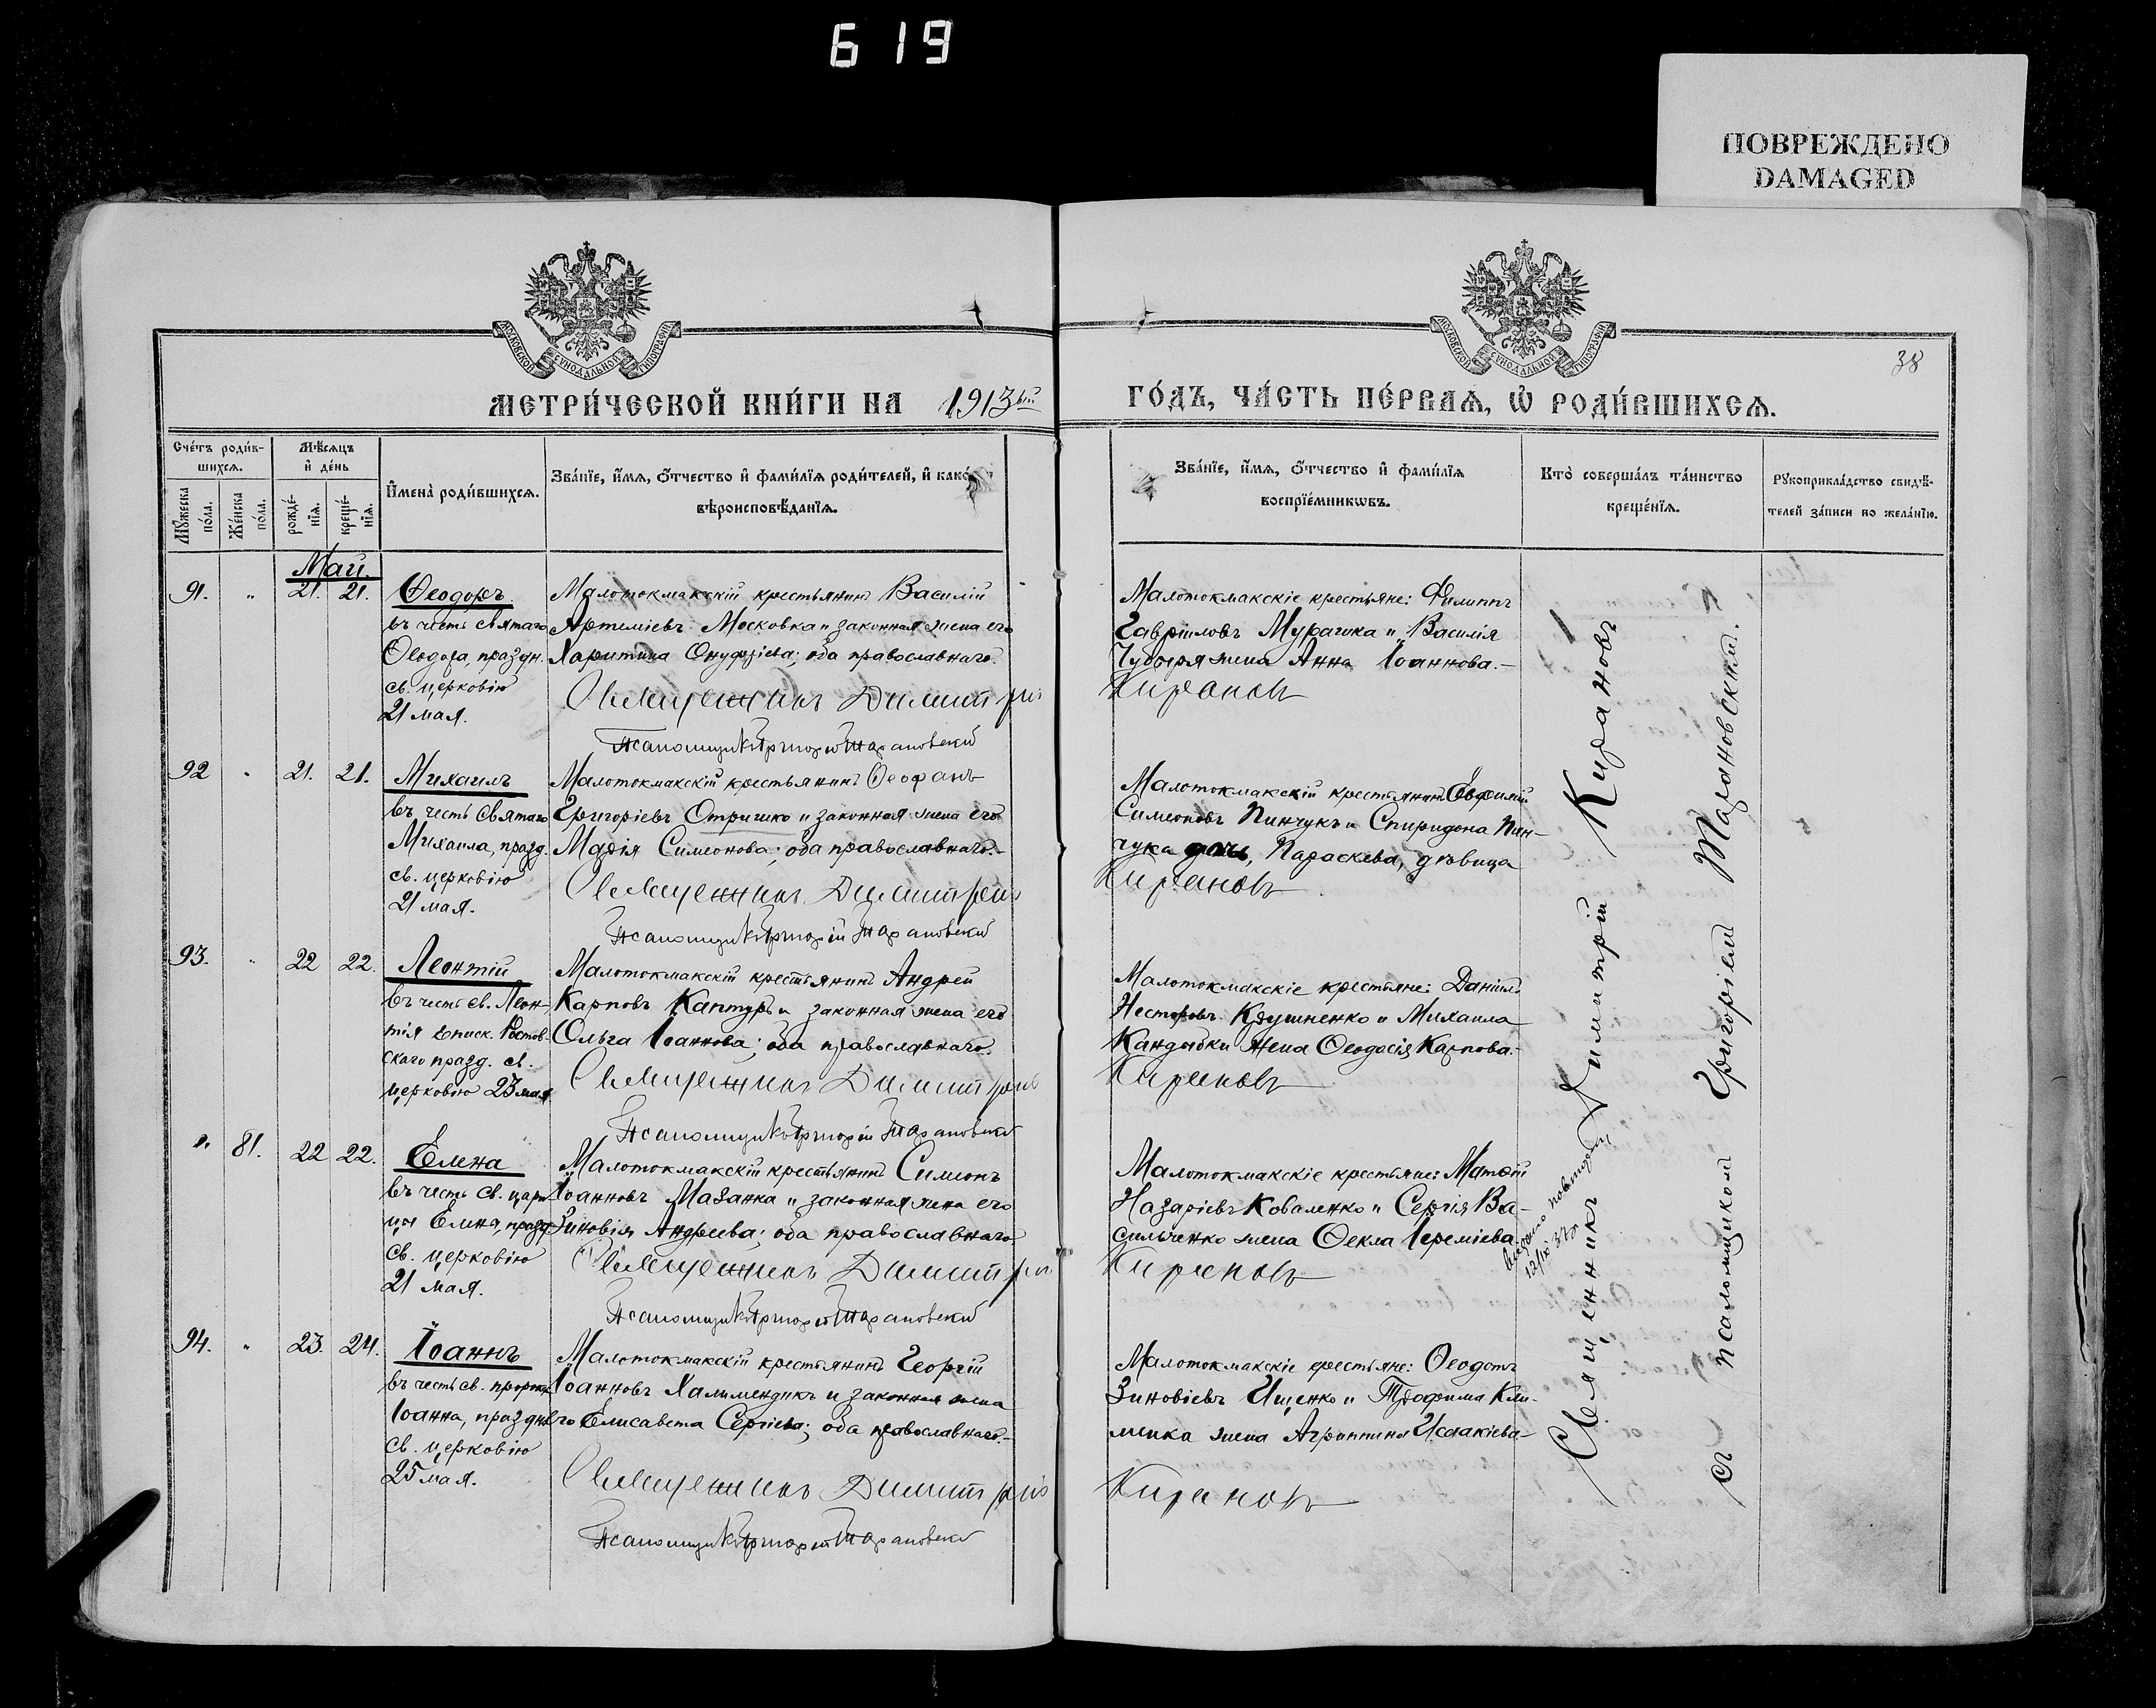 619
ПОВРЕЖДЕНО
DAMAGED
МОСКОВСКОЙ СѴНОДАЛЬНОЙ ТИПОГРАФІИ
МОСКОВСКОЙ СѴНОДАЛЬНОЙ ТИПОГРАФІИ
38
МЕТРИ́ЧЕСКОЙ КНИ́ГИ НА 1913ый
ГО́ДЪ, ЧА́СТЬ ПЕ́РВАѦ, Ѡ РОДИ́ВШИХСѦ.
Сче́тъ роди́в-
шихсѧ.
Мѣ́сѧцъ
и҆ де́нь
Мꙋ́жеска по́ла.
Же́нска по́ла.
рожде́-
нїѧ.
креще́-
нїѧ.
И҆мена̀ роди́вшихсѧ.
Зва́нїе, и҆́мѧ, ѻ҆́тчество и҆ фами́лїѧ роди́телей, и҆ како́
вѣроисповѣ́данїѧ.
Зва́нїе, и҆́мѧ, ѻ҆́тчество и҆ фами́лїѧ
воспрїе́мникѡвъ.
Кто̀ соверша́лъ та́инство
креще́нїѧ.
Рꙋкоприкла́дство свидѣ́-
телей за́писи по жела́нїю.
Май.
91. " 21. 21. Ѳеодоръ
въ честь святаго
Ѳеодора, праздн.
св. церковію
21 мая.
Малотокмакскій крестьянинъ Василій
Артеміевъ Московка и законная жена его
Харитина Онуфріева; оба православнаго.
Священникъ Димитрій
Псаломщикъ Григорій Тарановскій
Малотокмакскіе крестьяне: Филиппъ
Гавріиловъ Мурашка и Василія
жена Анна Іоаннова.-
Кирановъ
92 " 21. 21. Михаилъ
въ честь святаго
Михаила, празд.
св. церковію
21 мая.
Малотокмакскій крестьянинъ Ѳеофанъ
Григоріевъ Отришко и законная жена его
Марія Симеонова; оба православнаго.-
Священникъ Димитрій
Псаломщикъ Григорій Тарановскій
Малотокмакскій крестьянинъ Евфимій
Симеоновъ Пинчукъ и Спиридона Пин-
чука дочь, Параскева, дѣвица
Кирановъ
93. " 22 22. Леонтій
въ честь св. Леон-
тія Еписк. Ростов-
скаго празд. св.
церковію 23 мая
Малотокмакскій крестьянинъ Андрей
Карповъ Каптуръ и законная жена его
Ольга Іоаннова; оба православнаго.
Священникъ Димитрій
Псаломщикъ Григорій Тарановскій
Малотокмакскіе крестьяне: Даніилъ
Несторовъ Крушненко и Михаила
Кандыбки жена Ѳеодосія Карпова.-
Кирановъ
" 81. 22 22. Елена
въ честь св. цари-
цы Елены, празд.
св. церковію
21 мая.
Малотокмакскій крестьянинъ Симеонъ
Іоанновъ Мазанка и законная жена его
Зиновія Андреева; оба православнаго
Священникъ Димитрій
Псаломщикъ Григорій Тарановскій
Малотокмакскіе крестьяне: Матѳій
Назаріевъ Коваленко и Сергія Ва-
сильченко жена Ѳекла Іереміева
Кирановъ
94. " 23. 24. Іоаннъ
въ честь св. пророка
Іоанна, праздн.
св. церковію
25 мая.
Малотокмакскій крестьянинъ Георгій
Іоанновъ Халимендикъ и законная жена
его Елисавета Сергіева; оба православнаго.-
Священникъ Димитрій
Псаломщикъ Григорій Тарановскій
Малотокмакскіе крестьяне: Ѳеодотъ
Зиновіевъ Ищенко и Трофима Кли-
менка жена Агриппина Исаакіева-
Кирановъ
Священникъ Димитрій Кирановъ
съ псаломщикомъ Григоріемъ Тарановскимъ.